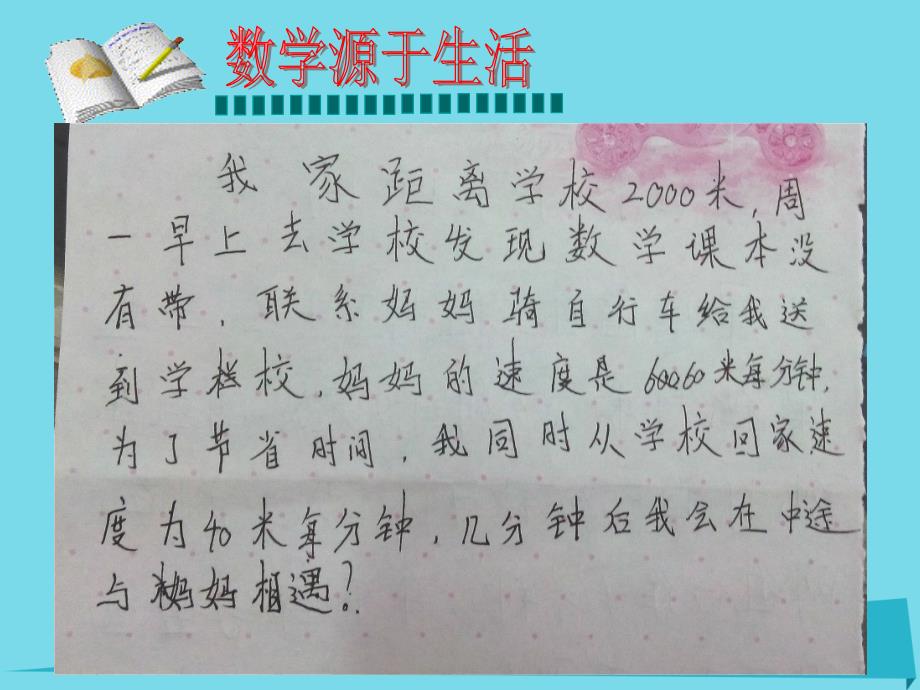 数学源于生活
我家距离学校2000米,周
一早上去学校发现数学课本没
有带,联系妈妈骑自行车给我送
到学校,妈妈的速度是60米每分钟,
为了节省时间,我同时从学校回家速
度为40米每分钟,几分钟后我会在中途
与妈妈相遇?